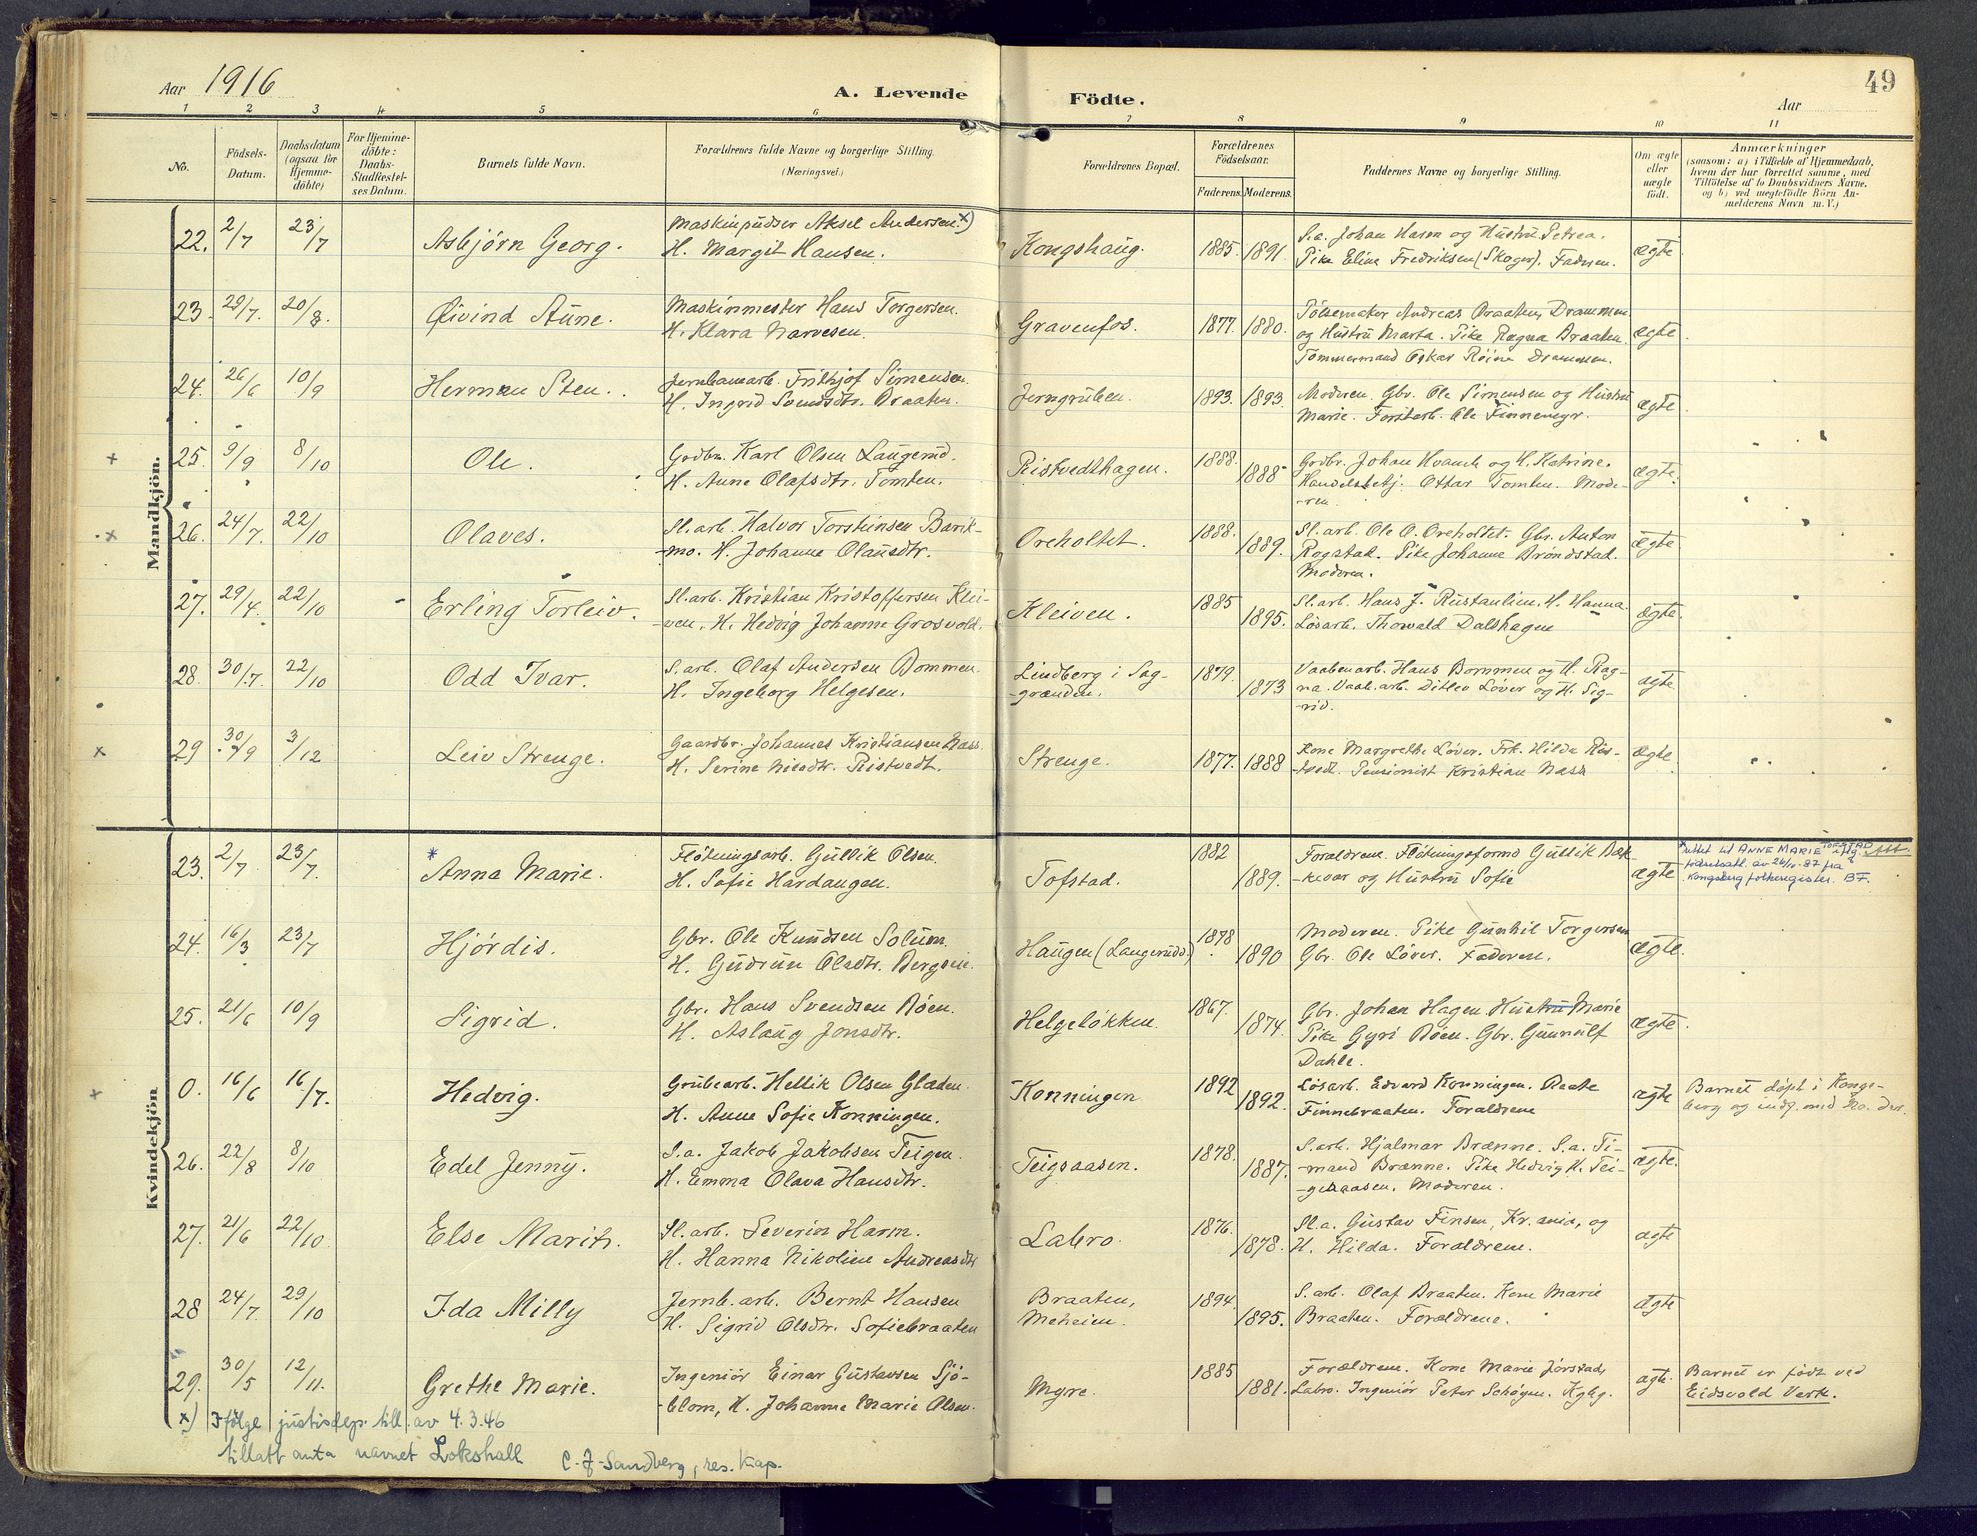 Aar 1916
A. Levende Födte.
49
Aar
1 2 3 4 5 6 7 8 9 10 11
No.
Födsels-Datum.
Daabsdatum (ogsaa for Hjemme-döbte)
For Hjemme-döbte: Daabs-Stadfæstel-ses Datum.
Barnets fulde Navn.
Forældrenes fulde Navne og borgerlige Stilling. (Næringsvei.)
Forældrenes Bopæl.
Forældrenes Födselsaar.
Faderens. Moderens.
Faddernes Navne og borgerlige Stilling.
Om ægte eller uægte födt.
Anmærkninger
(saasom: a) i Tilfælde af Hjemmedaab, hvem der har forrettet samme, med Tilföielse af to Daabsvidners Navne, og b) ved uegtefödte Börn An-melderens Navn m. V.)
Mandkjön.
22. 2/7 23/7 Asbjørn Georg. Maskinpudser Aksel Andersen. x)
H. Margit Hansen. Kongshaug. 1885. 1891. S.a. Johan Harm og Hustru Petrea.
Pike Eline Fredriksen (Skoger). Faderen. ægte
23. 29/7. 20/8. Øivind Aune. Maskinmester Hans Torgersen.
H. Klara Narvesen. Gravenfos. 1877. 1880. Pølsemaker Andreas Braaten, Drammen
og Hustru Marta. Pike Ragna Braaten.
Tømmermand Oskar Røine Drammen. ægte
24. 26/6 10/9 Herman Sten. Jernbanearb. Frithjof Simensen.
H. Ingrid Svendsdtr. Braaten. Jerngruben. 1893. 1893. Moderen. Gbr. Ole Simensen og Hustru
Marie. Forstarb. Ole Finnemyr. ægte
x 25. 9/9 8/10 Ole. Grdbr. Karl Olsen Langerud.
H. Anne Olafsdtr. Tomten. Ristvedthagen. 1888. 1888 Grdbr. Johan Hvamb og H. Katrine.
Handelsbetj. Ottar Tomten. Mode-
-ren. ægte.
x 26. 24/7. 22/10 Olaves. Sl. arb. Halvor Torstensen Barik-
-mo. H. Johanne Olausdtr. Oreholtet. 1888. 1889. Sl. arb. Ole O. Oreholtet. Gbr. Anton
Rogstad. Pike Johanne Brøndstad.
Moderen. ægte
27. 29/4. 22/10 Erling Torleiv. Sl. arb. Kristian Kristoffersen Klei-
-ven. H. Hedvig Johanne Grosvold. Kleiven. 1885 1895. Sl. arb. Hans J. Rustanlien. H. Hanna.
Løsarb. Thorvald Dalshagen ægte.
28. 30/7. 22/10 Odd Ivar. S. arb. Olaf Andersen Bommen.
H. Ingeborg Helgesen. Lindberg i Sag-
-grænden. 1879. 1873 Vaabenarb. Hans Bommen og H. Rag-
na. Vaab. arb. Ditlev Løver og H. Sig-
-rid. ægte
x 29 30/9 3/12 Leiv Strenge. Gaardbr. Johannes Kristiansen Næss.
H. Serine Nilsdtr. Ristvedt. Strenge. 1877. 1888 Kone Margrethe Løver. Frk. Hilda Ris-
-tvedt. Pensionist Kristian Næss ægte
Kvindekjön
23. 2/7 23/7. * Anna Marie. Fløtningsarb. Gullik Olsen.
H. Sofie Hardangen. Tofstad. 1882 1889. Forældrene. Fløtningsformd Gullik Bak-
-kerar og Hustru Sofie ægte * rettet til ANNE MARIE TOFSTAD iflg.
fødselsatt. av 26/11-87 fra
Kongsberg folkeregister. BF.
24. 16/3 23/7 Hjørdis. Gbr. Ole Knudsen Solum.
H. Gudrun Olsdtr. Bergseie. Haugen (Langerudd.) 1878. 1890 Moderen. Pike Gunhil Torgersen
Gbr. Ole Løver. Faderen. ægte.
25. 21/6 10/9 Sigrid. Gbr. Hans Svendsen Bøen.
H. Aslaug Jonsdtr. Helgeløkken. 1867. 1874. Gbr. Johan Hagen. Hustru Marie
Pike Gyri Bøen. Gbr. Gunnulf
Dahle. ægte.
x 0. 16/6 16/7. Hedvig. Grubearb. Hellik Olsen Gladen.
H. Anne Sofie Konningen. Konningen 1892 1892. Løsarb. Edvard Konningen. Beate
Finnebraaten. Forældrene ægte Barnet døpt i Kongs-
berg og indf. med No. der.
26. 22/8 8/10 Edel Jenny. S.a. Jakob Jakobsen Teigen.
H. Emma Olava Hansdtr. Teigsaasen. 1878. 1887. S. arb. Hjalmar Brænne. S.a. Ti-
-mand Brænne. Pike Hedvig K. Tei-
-genaasen. Moderen. ægte.
27. 21/6 22/10. Else Marit. Sl. arb. Severin Harm.
H. Hanna Nikoline Andreasdtr Labro. 1876. 1878. Sl.a. Gustav Finsen, Kr.ania, og
H. Hilda. Forældrene. ægte
28 24/7. 29/10 Ida Milly Jernb. arb. Bernt Hansen
H. Sigrid Olsdtr. Sofiebraaten Braaten,
Meheien. 1894. 1895. S. arb. Olaf Braaten. Kone Marie
Braaten. Forældrene. ægte
29. 30/5 12/11. Grethe Marie. Ingeniør Einar Gustavsen Sjö-
-blom, H. Johanne Marie Olsen. Myre. 1885 1881. Forældrene. Kone Marie Jørstad,
Labro. Ingeniør Peter Schøyen. Kgbg. ægte. Barnet er født ved
Eidsvold Verk.
x) Ifølge justisdep. till. av 4.3.46
tillatt anta navnet Lokshall C. F. Sandberg, res. kap.